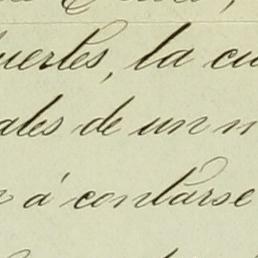 uertes, la cu
ales de un n
á contarse